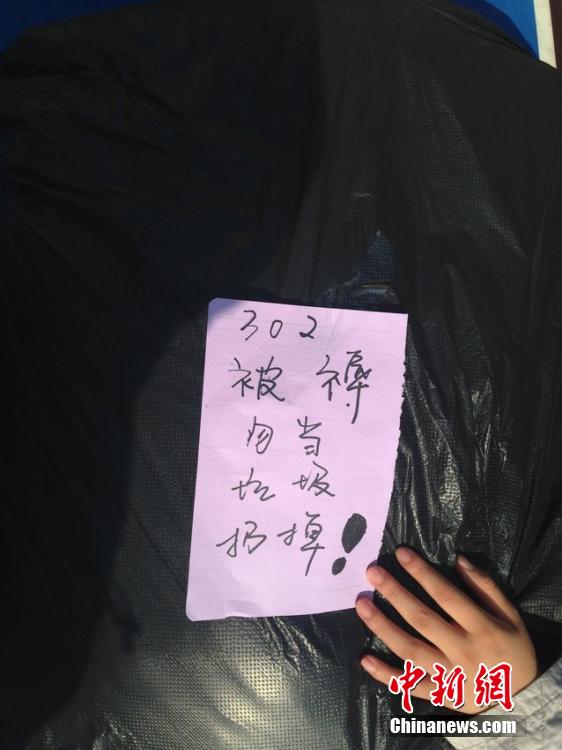 302
被褥
勿当
垃圾
扔掉!
中新网
Chinanews.com